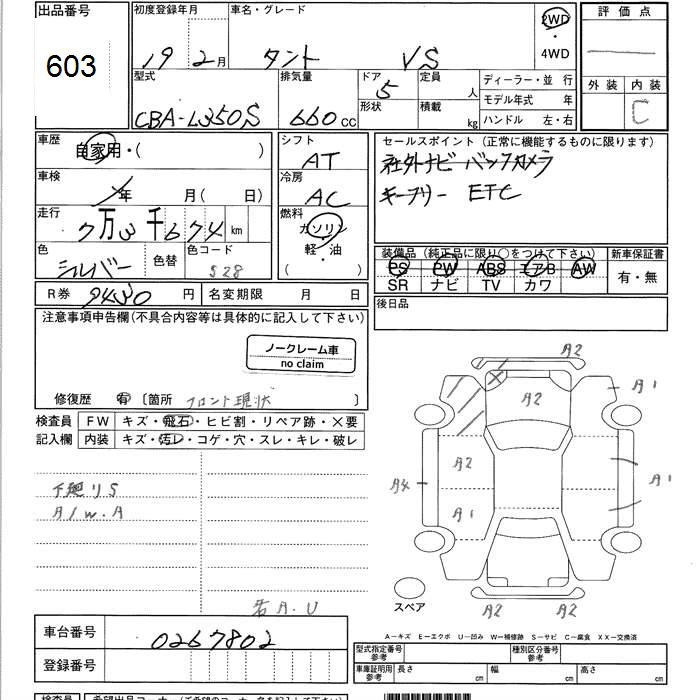 出品番号 初度登録年月 車名・グレード 評価点
603 19 2月 タント VS 2WD
4WD
型式 排気量 ドア 定員 ディーラー・並行 外装 内装
CBA-L350S 660cc 5 人 モデル年式 年 C
形状 積載 kg ハンドル 左・右
車歴 シフト セールスポイント(正常に機能するものに限ります)
自家用・( ) AT 社外ナビ バックカメラ
車検 冷房 キーフリー ETC
年 月(日) AC
走行 燃料
7万3千674km ガソリン
色 色替 色コード 軽・油 装備品(純正品に限り○をつけて下さい) 新車保証書
シルバー S28 ( ) PS PW ABS エアB AW 有・無
SR ナビ TV カワ
R券 9430円 名変期限 月 日 後日品
注意事項申告欄(不具合内容等は具体的に記入して下さい)
ノークレーム車
no claim
修復歴 有 〔箇所 フロント現状 〕
検査員 FW キズ・飛石・ヒビ割・リペア跡・×要
記入欄 内装 キズ・汚レ・コゲ・穴・スレ・キレ・破レ
A2
A2 A1
A2 A4 A1
A1
下廻りS
A/W.A
A.U
A2 A2
スペア
A-キズ E-エクボ U-凹み W-補修跡 S-サビ C-腐食 XX-交換済
車台番号 0267802
型式指定番号 参考 種別区分番号 参考
登録番号 車庫証明用 参考 長さ cm 幅 cm 高さ cm
検査員 希望出品コーナー(ご希望のコーナー名を記入して下さい)